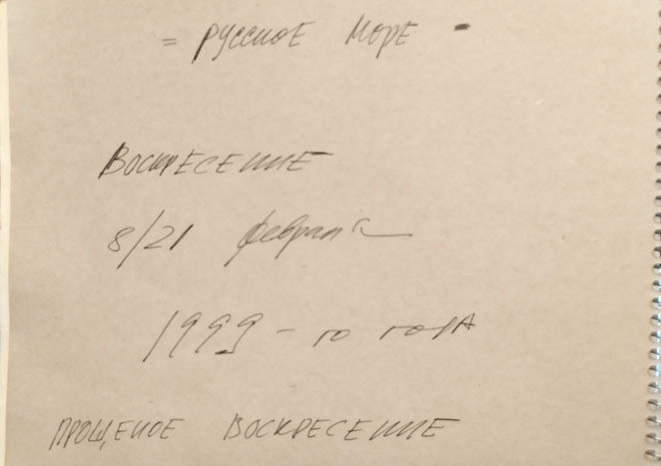 = РУССКОЕ МОРЕ -
ВОСКРЕСЕНИЕ
8/21 февраля
1999-го года
ПРОЩЕНОЕ ВОСКРЕСЕНИЕ